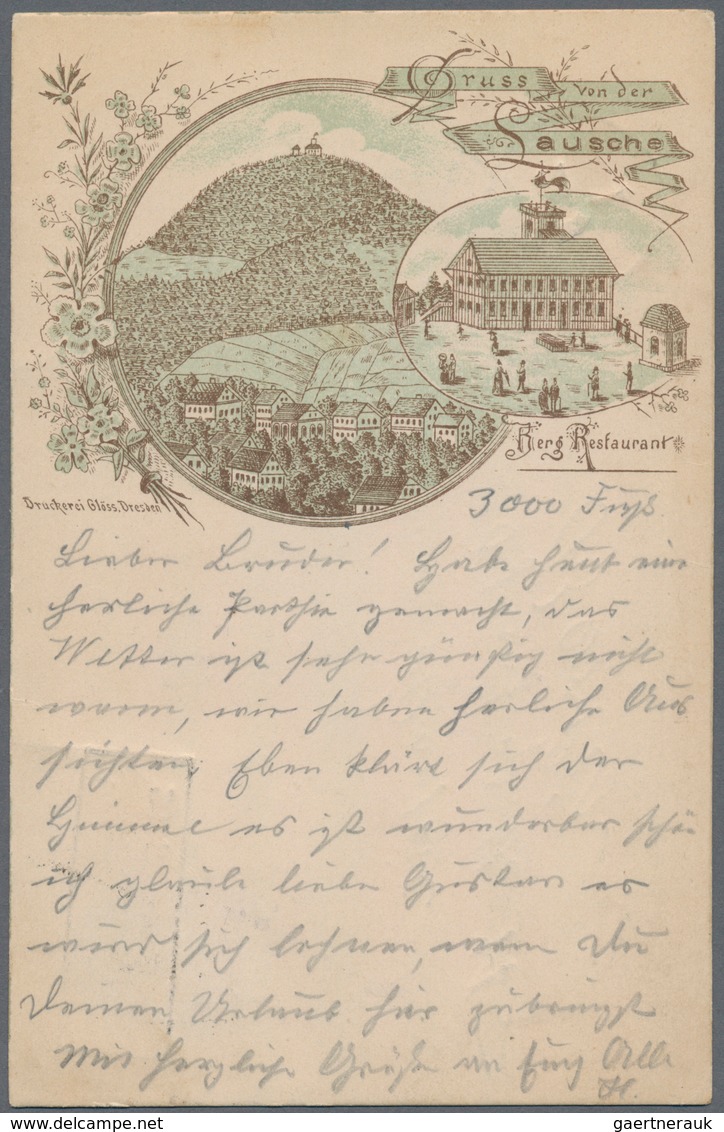 Gruss von der
Lausche
Berg Restaurant
Druckerei Glöss, Dresden
3000 Fuß
Lieber Bruder! Habe heut eine
herliche Parthie gemacht, das
Wetter ist sehr günstig nicht
warm, wir haben herliche Aus
sichten. Eben klärt sich der
Himmel es ist wunderbar schön
ich glaube lieber Gustav es
wird sich lohnen, wenn Du
Deinen Urlaub hier zubringst
Mit herzliche Grüße an Euch Alle
H.
gaertnerauk